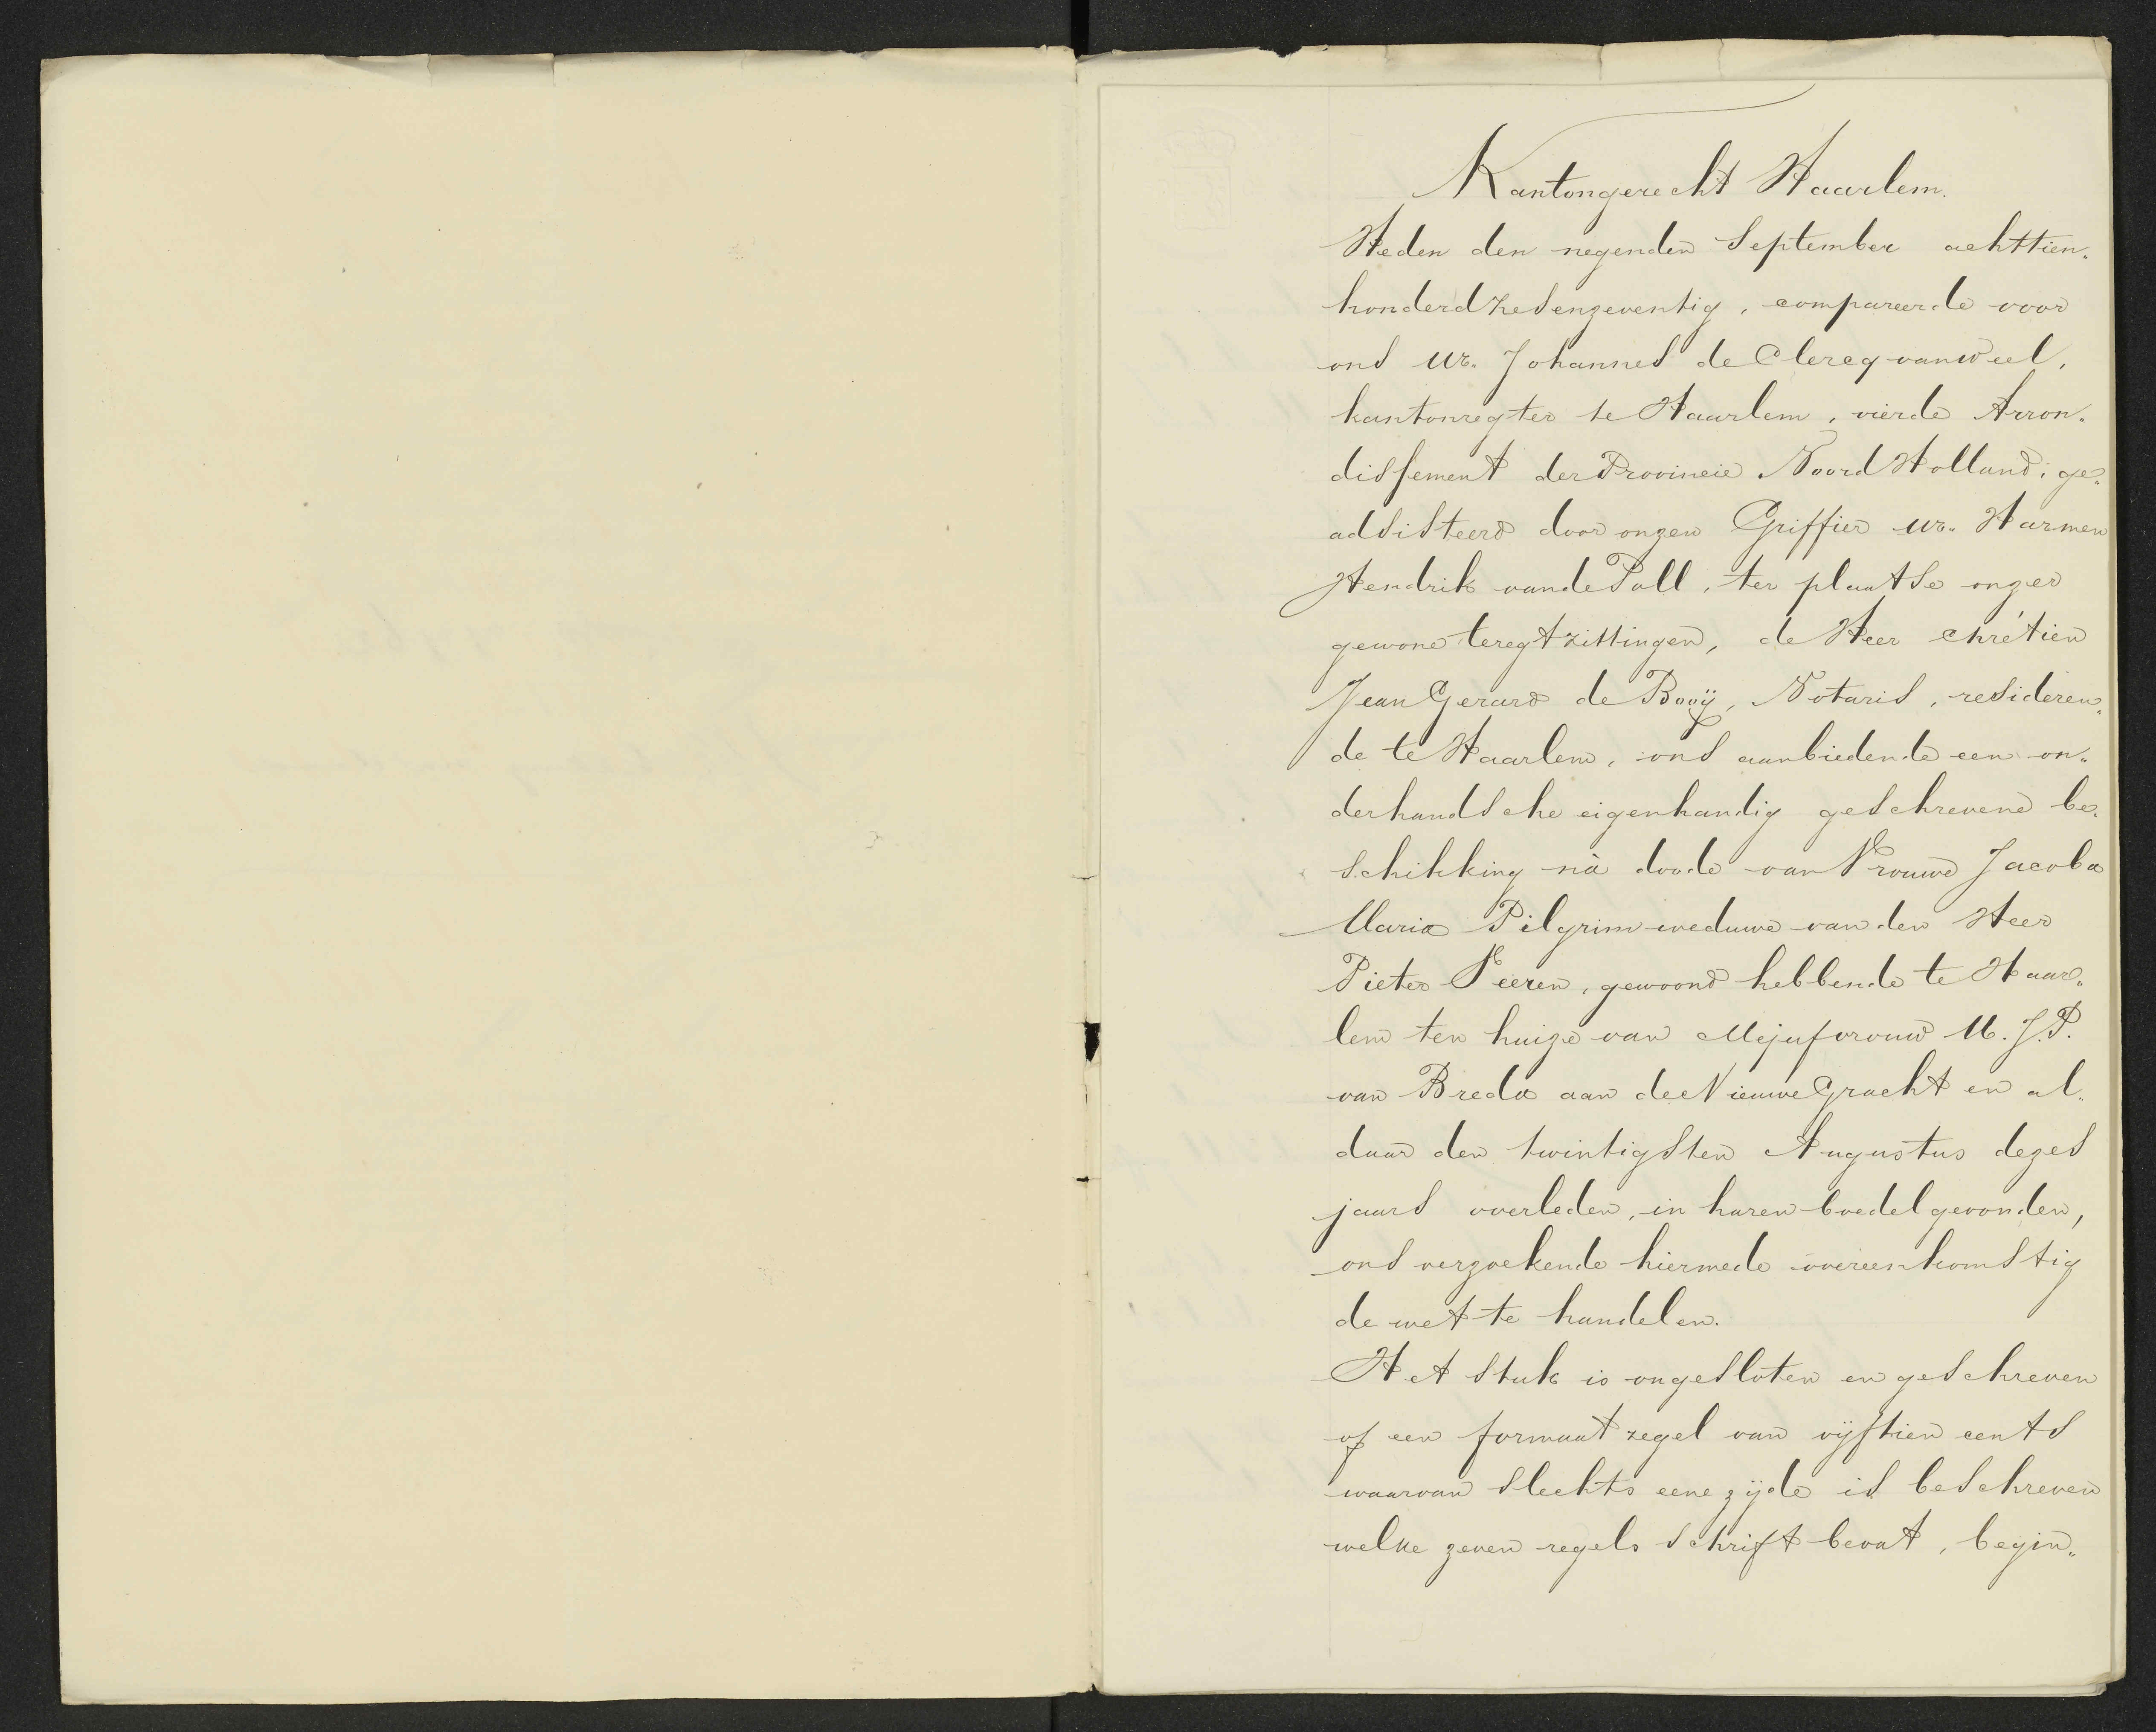 Kantongerecht Haarlem.
Heden den negenden September achttien„
honderdzesenzeventig, compareerde voor
ons Mr. Johannes de Clercq van Weel,
kantonregter te Haarlem, vierde Arron„
dissement der Provincie Noord Holland, ge„
adsisteerd door onzen Griffier Mr. Harmen
Hendrik van de Poll, ter plaatse onzer
gewone teregtzittingen, de Heer Chrétien
Jean Gerard de Booÿ, Notaris, resideren„
de te Haarlem, ons aanbiedende een on„
derhandsche eigenhandig geschrevene be„
schikking nà doode van Vrouwe Jacoba
Maria Pilgrim weduwe van den Heer
Pieter Veeren, gewoond hebbende te Haar„
lem ten huize van Mejufvrouw M. J. P.
van Breda aan de Nieuwe Gracht en al„
daar den twintigsten Augustus dezes
jaars overleden, in haren boedel gevonden,
ons verzoekende hiermede overeenkomstig
de wet te handelen.
Het stuk is ongesloten en geschreven
op een formaat zegel van vijftien cents
waarvan slechts eene zijde is beschreven
welke zeven regels schrift bevat, begin„